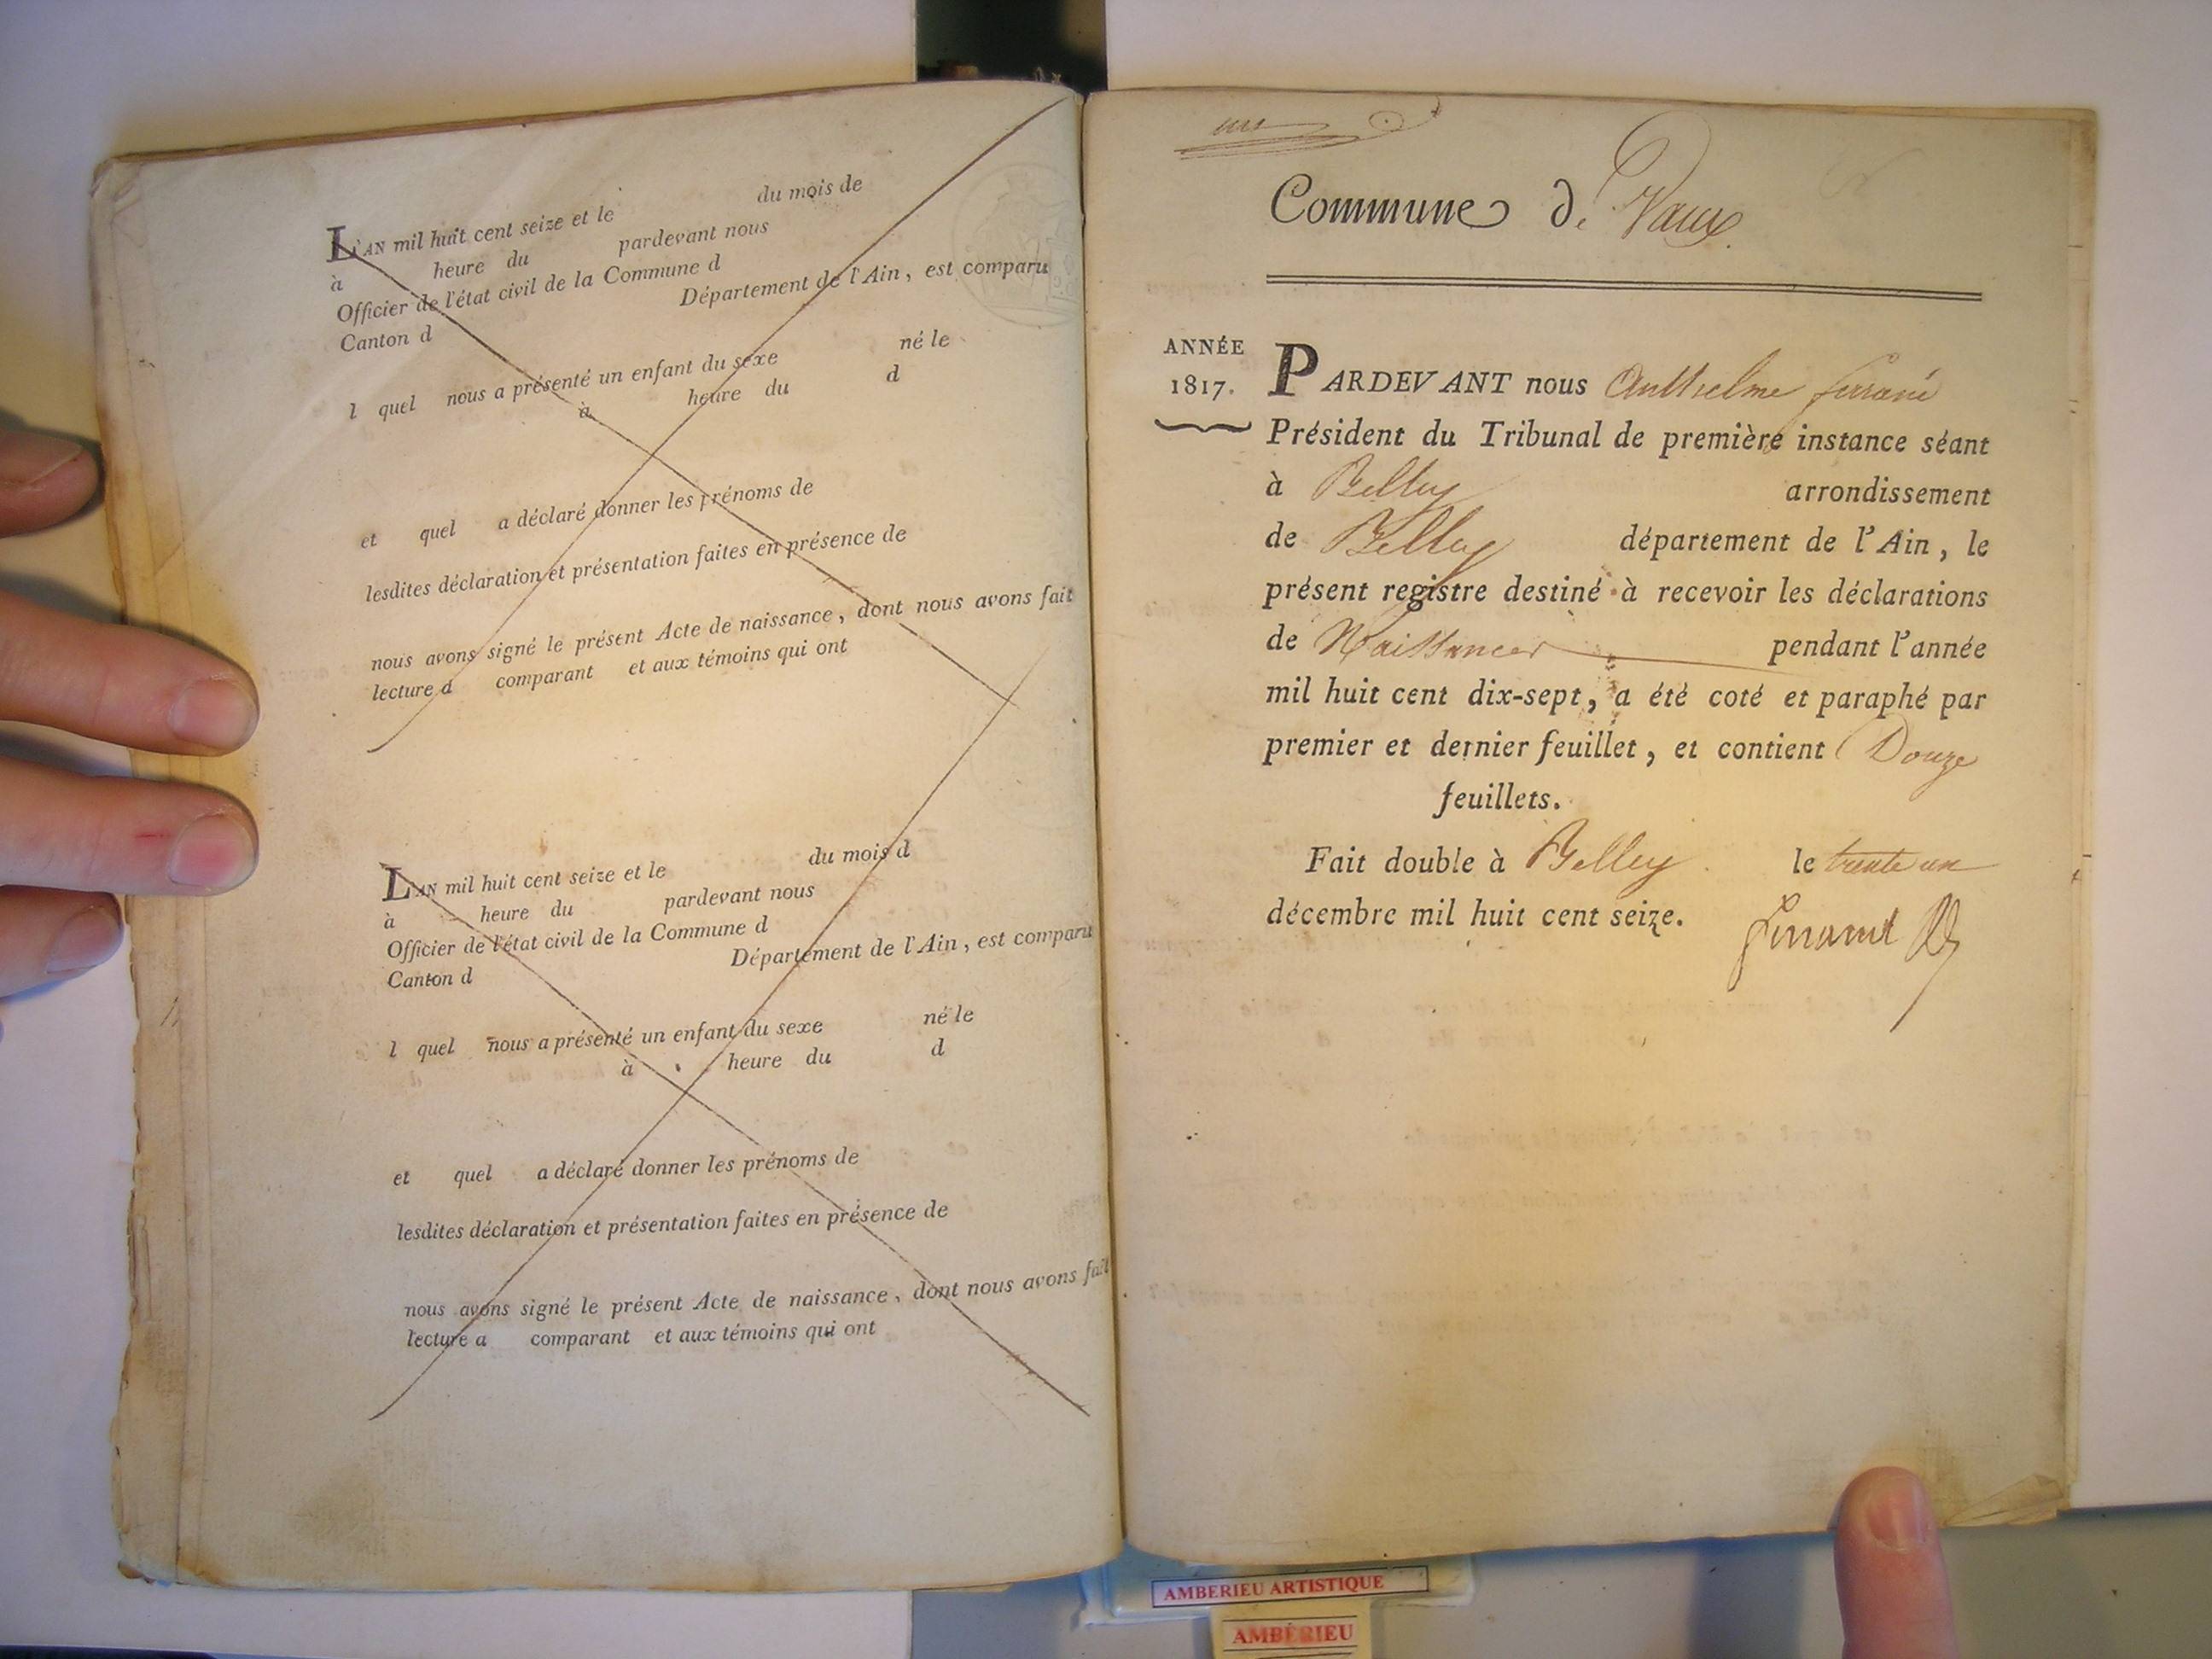 L'AN mil huit cent seize et le du mois de
à heure du pardevant nous
Officier de l'état civil de la Commune d
Canton d Département de l'Ain, est comparu
l quel nous a présenté un enfant du sexe né le
à heure du d
et quel a déclaré donner les prénoms de
lesdites déclaration et présentation faites en présence de
nous avons signé le présent Acte de naissance, dont nous avons fait
lecture a comparant et aux témoins qui ont
L'AN mil huit cent seize et le du mois d
à heure du pardevant nous
Officier de l'état civil de la Commune d
Canton d Département de l'Ain, est comparu
l quel nous a présenté un enfant du sexe né le
à heure du d
et quel a déclaré donner les prénoms de
lesdites déclaration et présentation faites en présence de
nous avons signé le présent Acte de naissance, dont nous avons fait
lecture a comparant et aux témoins qui ont
Commune de Vaux.
ANNÉE
1817.
PARDEVANT nous Anthelme
Président du Tribunal de première instance séant
à Belley arrondissement
de Belley département de l'Ain, le
présent registre destiné à recevoir les déclarations
de Naissances pendant l'année
mil huit cent dix-sept, a été coté et paraphé par
premier et dernier feuillet, et contient Douze
feuillets.
Fait double à Belley le trente un
décembre mil huit cent seize.
AMBERIEU ARTISTIQUE
AMBÉRIEU